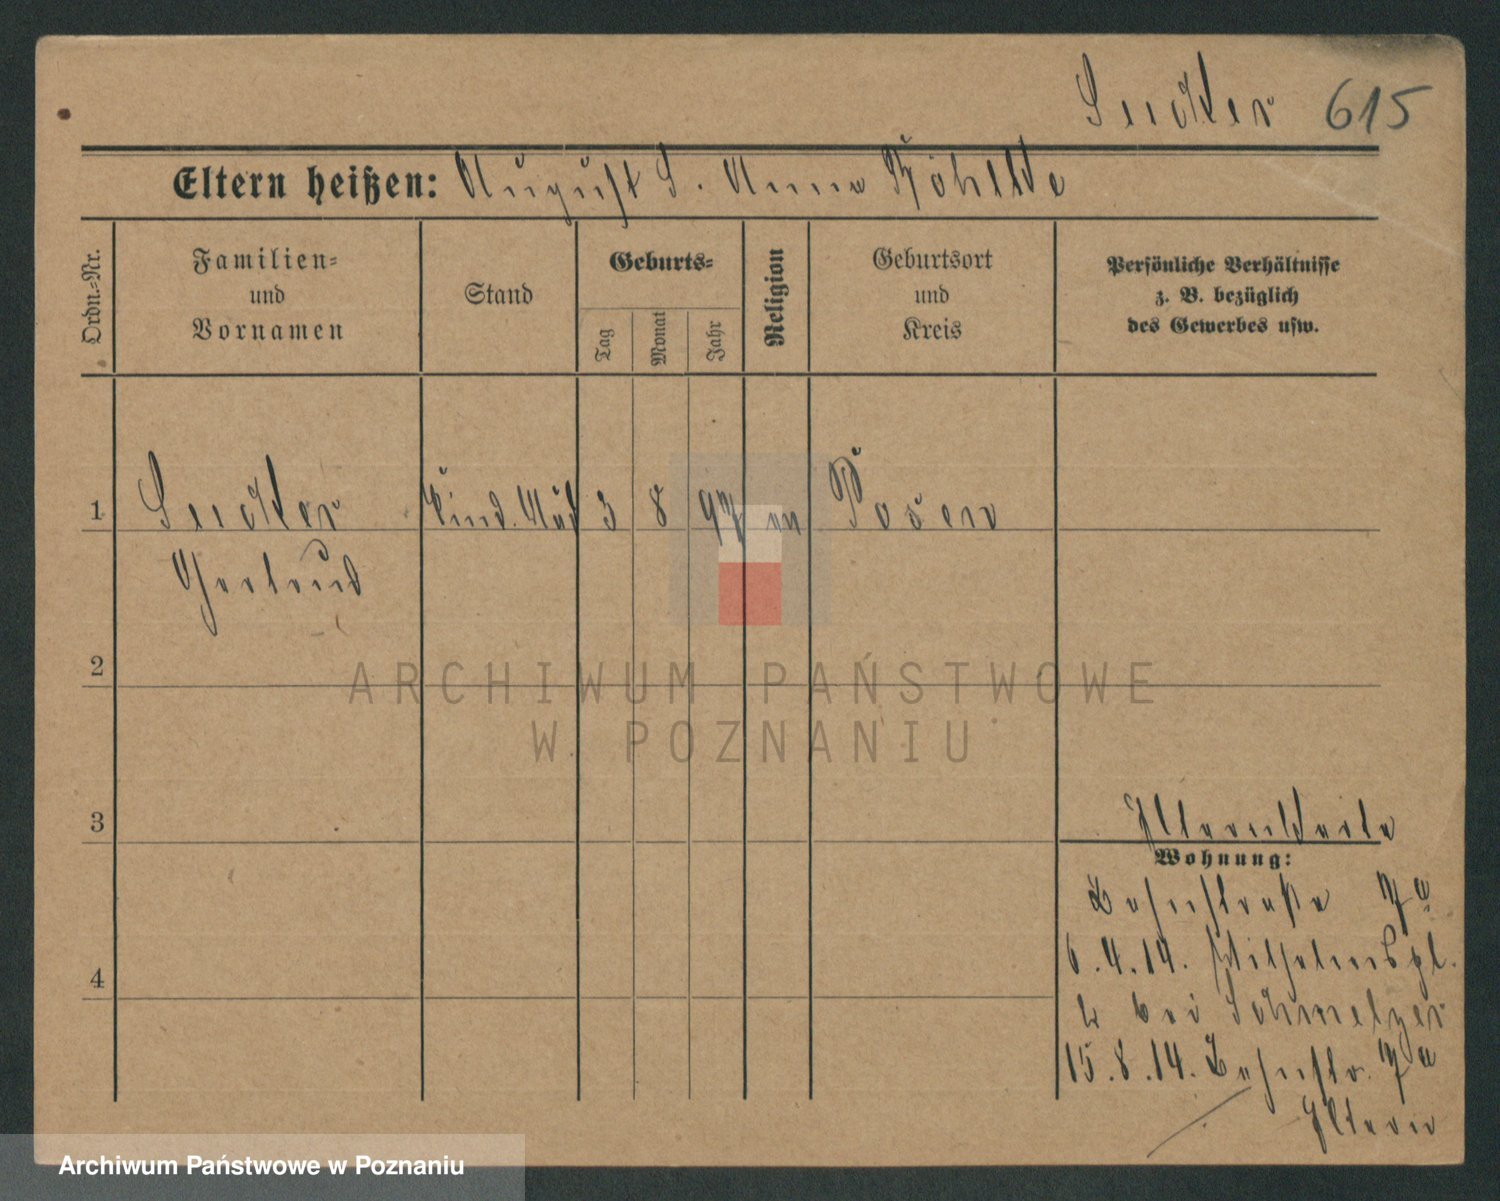 Seicker 615
Eltern heißen: August S. Anna
Ordn.-Nr.
Familien-
und
Vornamen
Stand
Geburts-
Tag
Monat
Jahr
Religion
Geburtsort
und
Kreis
Persönliche Verhältnisse
z. B. bezüglich
des Gewerbes usw.
1 Seicker 3 8 97 Posen
Gertrud
2
ARCHIWUM PAŃSTWOWE
W POZNANIU
3
Elternkarte
Wohnung:
4
Bahnstraße 7a
6.4.14. Wilhelmspl.
2 bei Schmelzer
15.8.14. Bahnstr. 7a
Eltern
Archiwum Państwowe w Poznaniu